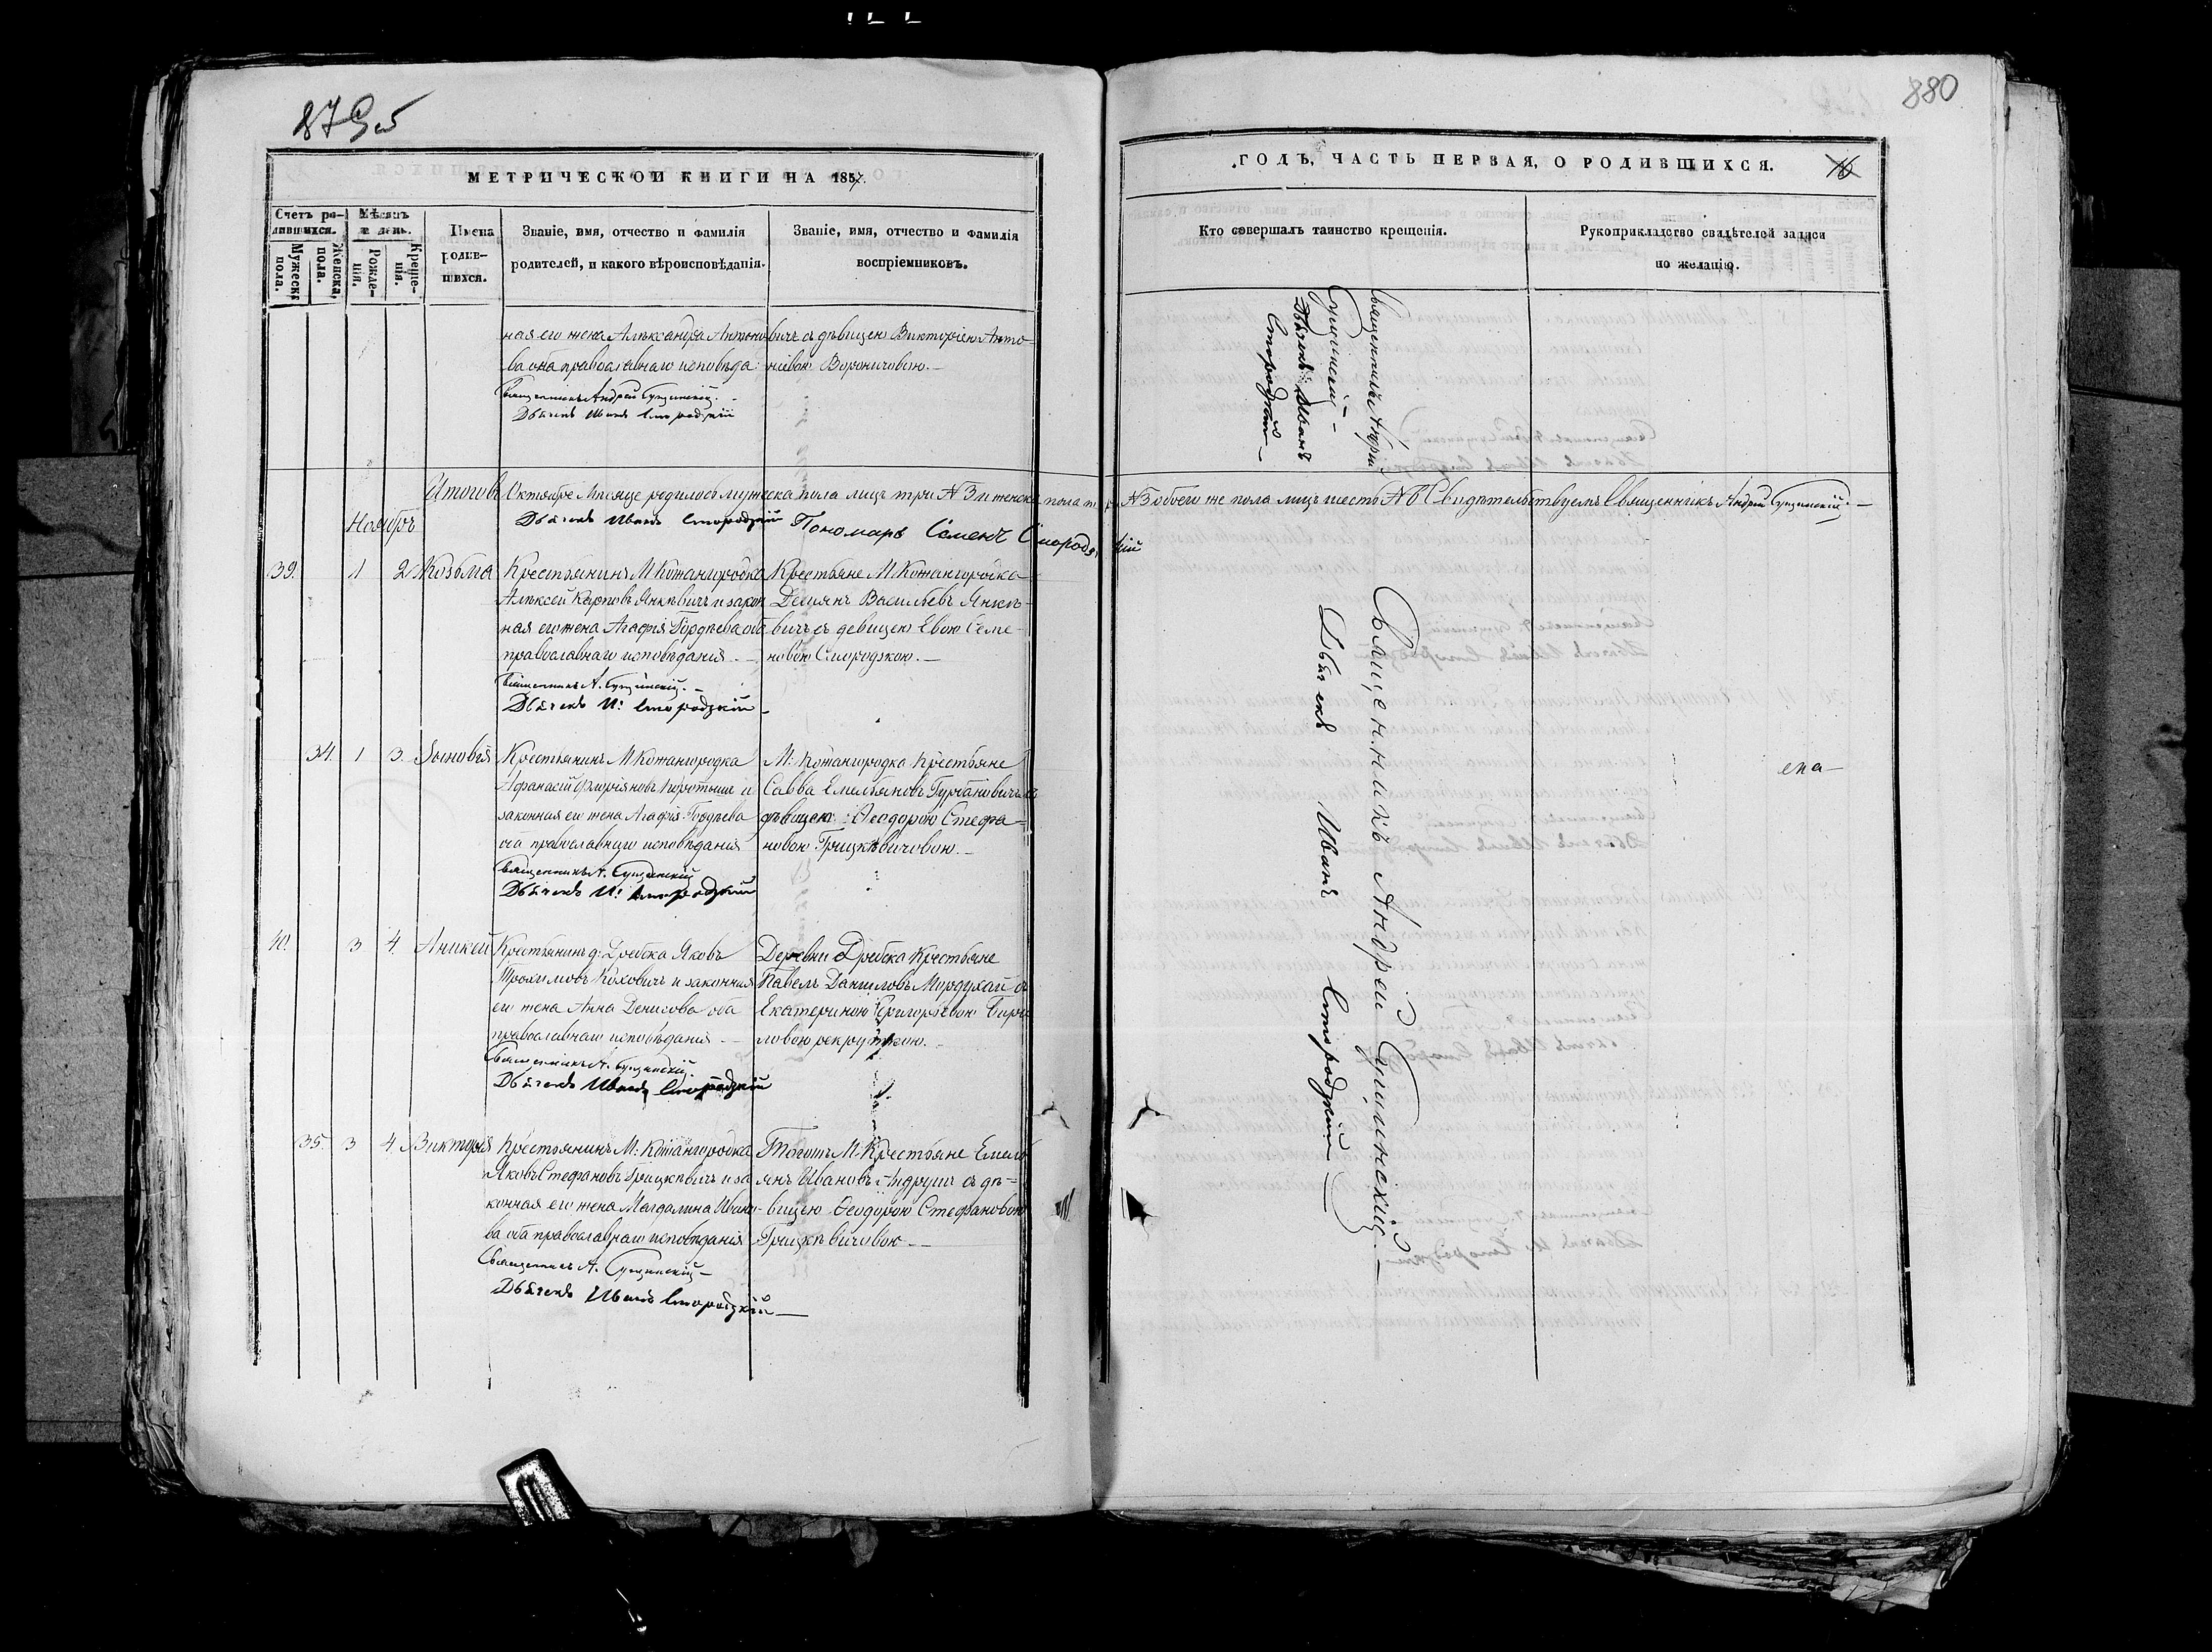 879об
880
МЕТРИЧЕСКОЙ КНИГИ НА 1857.
.ГОДЪ, ЧАСТЬ ПЕРВАЯ, О РОДИВШИХСЯ.
Счетъ ро-
дившихся.
Мужеска
пола.
Женска,
пола.
Мѣсяцъ
и день.
Рожде-
нія.
Креще-
нія.
Имена
родив-
шихся.
Званіе, имя, отчество и фамилія
родителей, и какого вѣроисповѣданія.
Званіе, имя, отчество и фамилія
воспріемниковъ.
Кто совершалъ таинство крещенія.
Рукоприкладство свидѣтелей записи
по желанію.
ная его жена Александра Антоно
ва оба православнаго исповѣда:
Священникъ Андрей Сущинскій.
Дьячекъ Иванъ Смородзкій
вичъ съ дѣвицею Викторіею Анто-
ніевою Вороничовою.
Священникъ Андрей
Сущинскій
Дьячекъ Иванъ
Смородзкій
Итого въ Октябре Мѣсяце родилось мужеска пола лицъ три № 3 и женска пола № 3 обоего же пола лицъ шесть № 6 Свидѣтельствуемъ Священникъ Андрей Сущинскій
Дьячекъ Иванъ Смородзкій Пономарь Семенъ Смородзкій
Ноябрь
39. 1 2 Козьма
Крестьянинъ М Кожангородка
Алексей Карповъ Янкевичъ и закон
ная его жена Агафія Гордѣева оба
православнаго исповѣданія.
Священникъ А. Сущинскій.
Дьячекъ И: Смородзкій
Крестьяне М Кожангородка
Демянъ Васильевъ Янке-
вичъ съ девицею Евою Семе-
новою Смородзкою.
34. 1 3. Зыновія
Крестьянинъ М Кожангородка
Афанасій Флоріяновъ Коротыша и
законная его жена Агафія Гордѣева
оба православнаго исповѣданія
Священникъ А. Сущинскій
Дьячекъ И: Смородзкій
М: Кожангородка Крестьяне
Савва Емельяновъ Гурбановичъ съ
дѣвицею: Ѳеодорою Стефа-
новою Грицкѣвичовою.
ена
40. 3 4. Аникей
Крестьянинъ д: Дребска Яковъ
Трохимовъ Коховичъ и законная
его жена Анна Денисова оба
православнаго исповѣданія.
Священникъ А. Сущинскій.
Дьячекъ Иванъ Смородзкій
Деревни Дребска Крестьяне
Павелъ Даниловъ Мордухай съ
Екатериною Григорьевою Киры
ловою рекруткою.
35. 3 4. Викторія
Крестьянинъ М: Кожангородка
Яковъ Стефановъ Грицкѣвичъ и за
конная его жена Магдалина Ивано-
ва оба православнаго исповѣданія
Священникъ А. Сущинскій
Дьячекъ Иванъ Смородзкій
Тогожъ М. Крестьяне Емель
янъ Ивановъ Андрушъ съ дѣ-
вицею Ѳеодорою Стефановою
Грицкѣвичовою
Священникъ Андрей Сущинскій.
Дьячекъ Иванъ Смородзкій